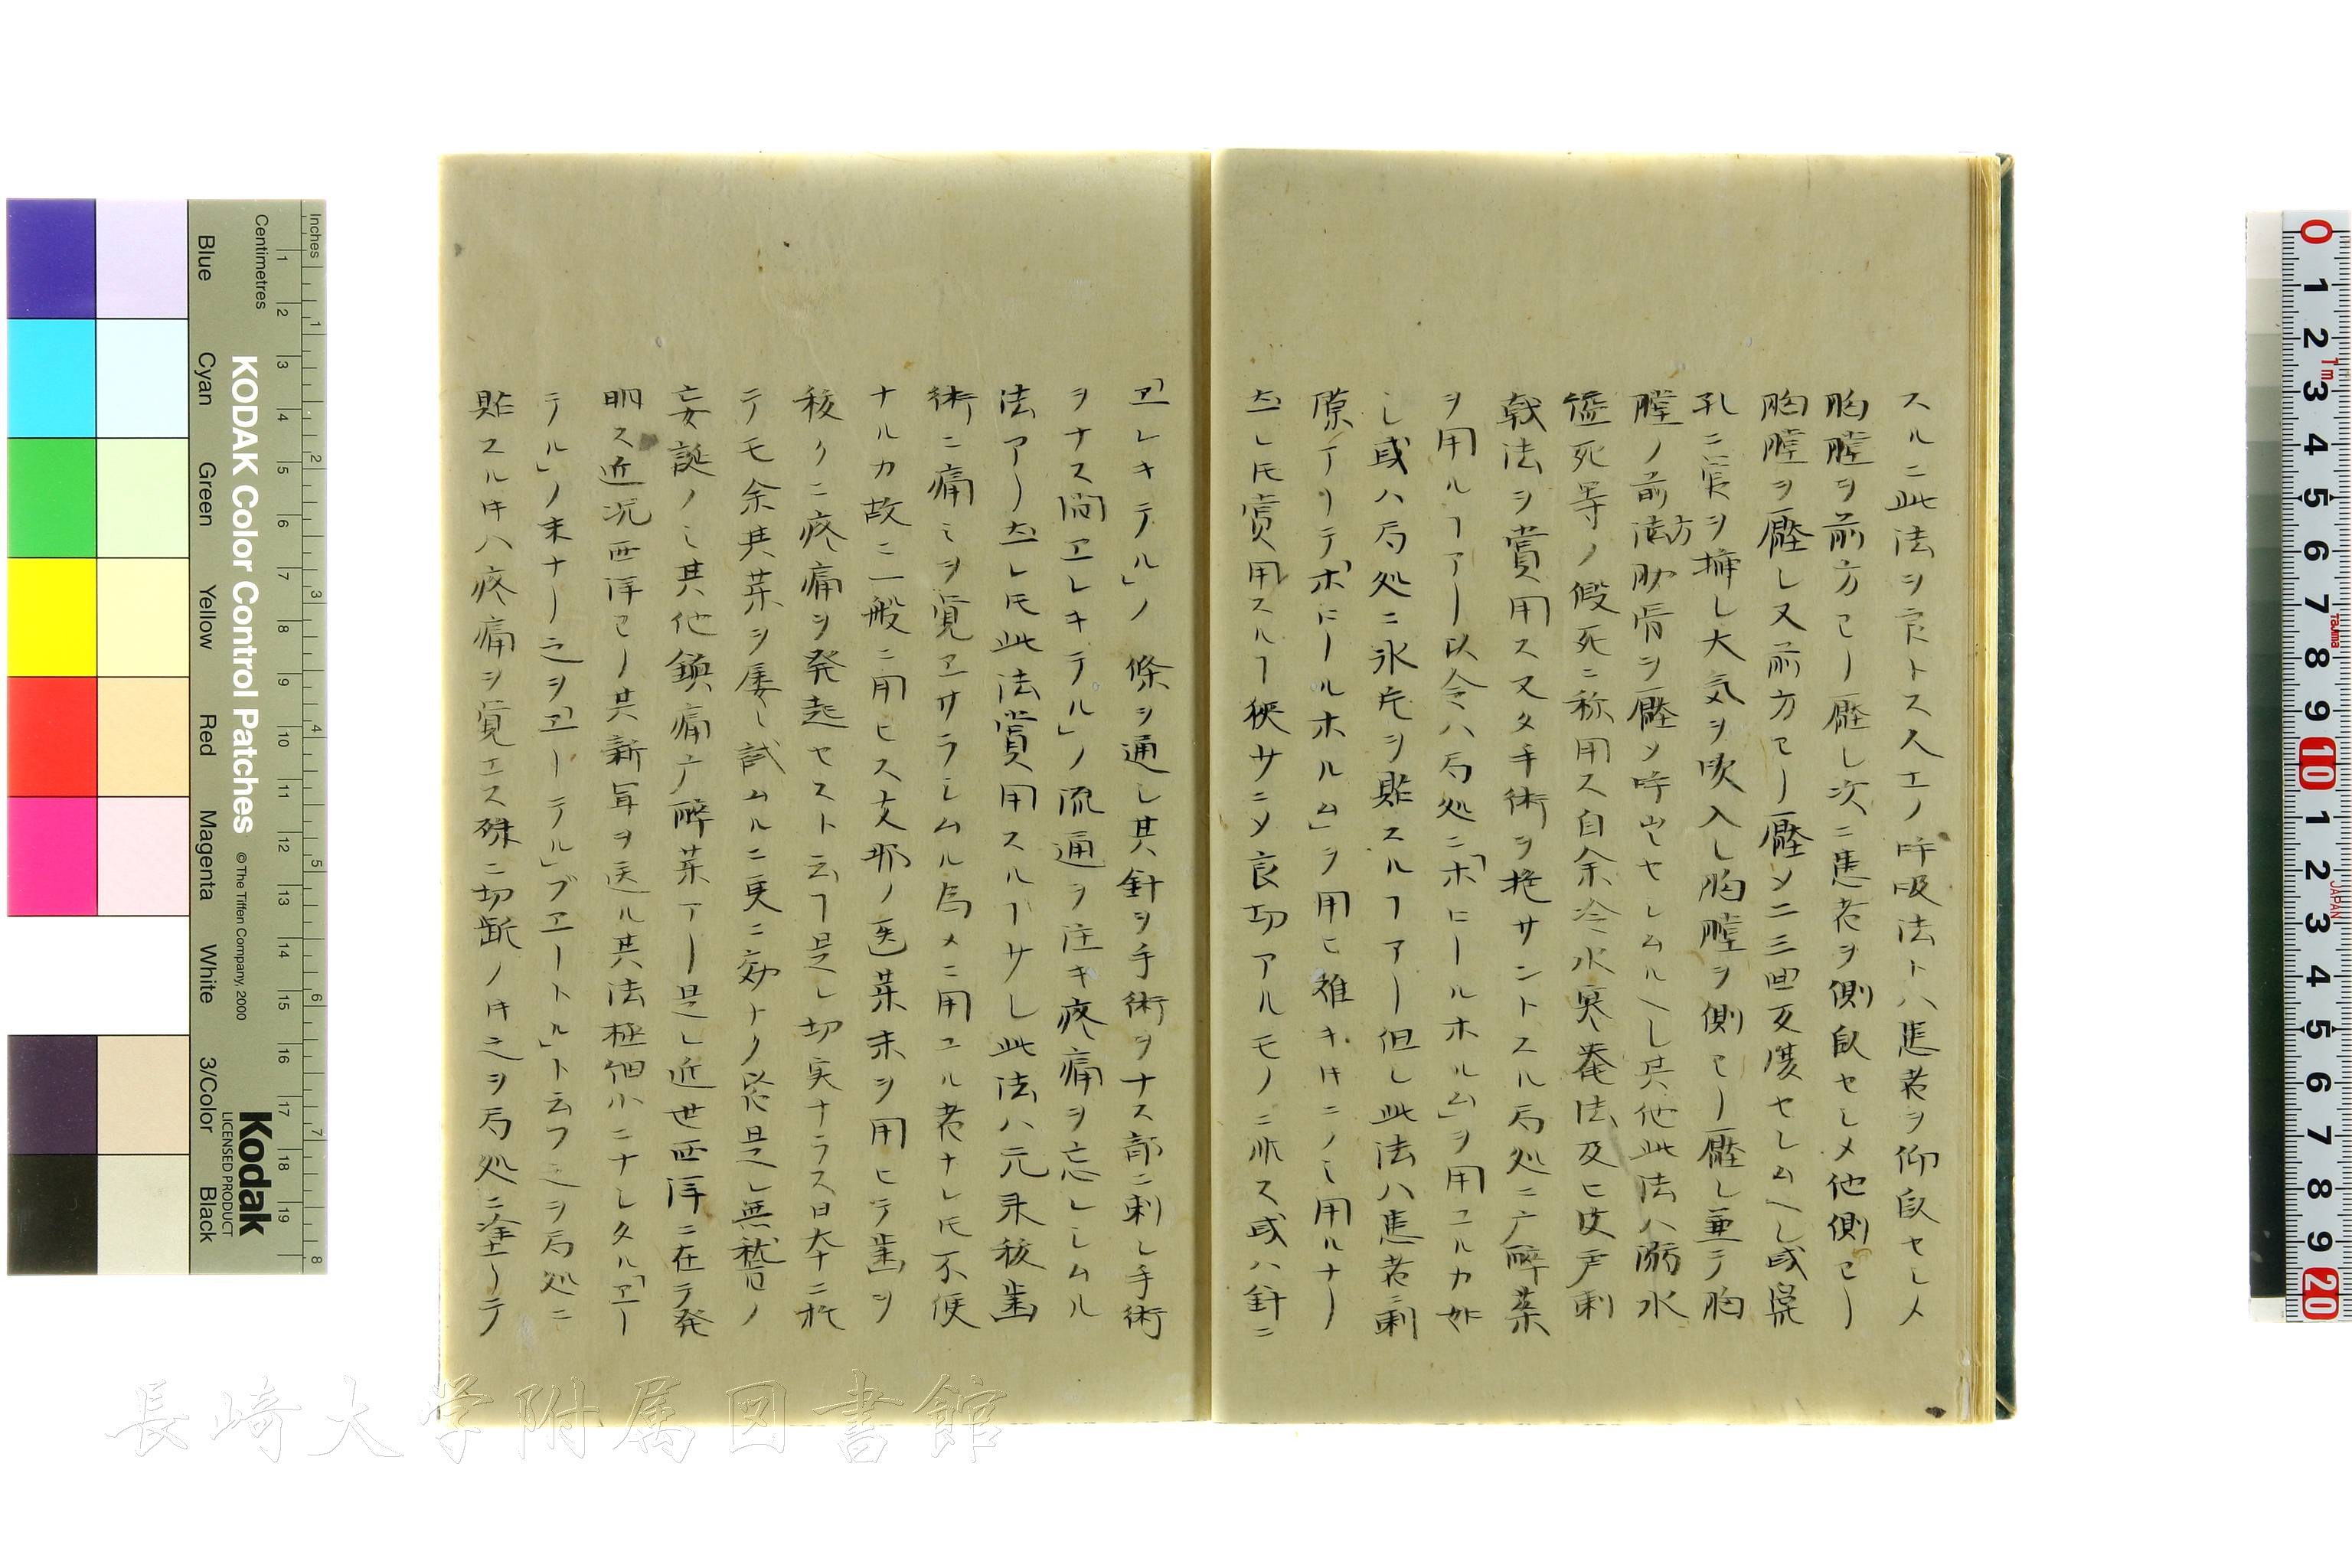 スルニ此法ヲ宜トス人工ノ呼吸法トハ患者ヲ仰臥セシメ
胸膛ヲ前方ヨリ壓シ次ニ患者ヲ側臥セシメ他側ヨリ
胸膛ヲ壓シ又前方ヨリ壓シ二三回反復セシムヘシ或鼻
孔ニ管ヲ挿シ大気ヲ吹入シ胸膛ヲ側ヨリ壓シ兼テ胸
膛ノ前方肋骨ヲ壓シ呼出セシムルヘシ其他此法ハ溺水
縊死等ノ假死ニ称用ス自余冷水寒菴法及ヒ皮戸刺
戟法ヲ賞用ス又タ手術ヲ施サントスル局処ニ广醉薬
ヲ用ルヿアリ以令ハ局処ニ「ホロールホルム」ヲ用ユルカ如
シ或ハ局処ニ氷片ヲ貼スルヿアリ但シ此法ハ患者刺
原アリテ「ホロールホルム」ヲ用ヒ難キ片ニノミ用ルナリ
然レ𪜈賞用スルヿ狹サニメ良切アルモノニ非ス或ハ針ニ
「ヱレキテル」ノ條ヲ通シ其針ヲ手術ヲナス部ニ刺シ手術
ヲナス間ヱレキテル」ノ流通ヲ注キ疼痛ヲ忘レシムル
法アリ然レ𪜈此法賞用スルヿサシ此法ハ元来秡歯
術ニ痛ミヲ覚ヱサラシムル為メニ用ユル者ナレ𪜈不便
ナルカ故ニ一般ニ用ヒス支那ノ医薬末ヲ用ヒテ歯ヲ
秡クニ疼痛ヲ発起セスト云ヿ是レ切実ナラス日本ニ於
テモ余其薬ヲ屡シ試ムルニ更ニ効トク是レ無稽ノ
妄誕ノミ其他鎮痛广醉薬アリ是レ近世西洋ニ在テ発
明ス近況西洋ヨリ其新毎ヲ送ル其法極細小ニナレタル「ヱー
テル」ノ末ナリ之ヲ「ヱーテル」ブヱートル」ト云フ之ヲ局処ニ
貼スル片ハ疼痛ヲ覚エス殊ニ切断ノ片之ヲ局処ニ塗ーテ
KODAK Color Control Patches
© The Tiffen Company, 2000
Kodak
LICENSED PRODUCT
Inches
Centimetres
Blue
Cyan
Green
Yellow
Red
Magenta
White
3/Color
Black
長崎大学附属図書館